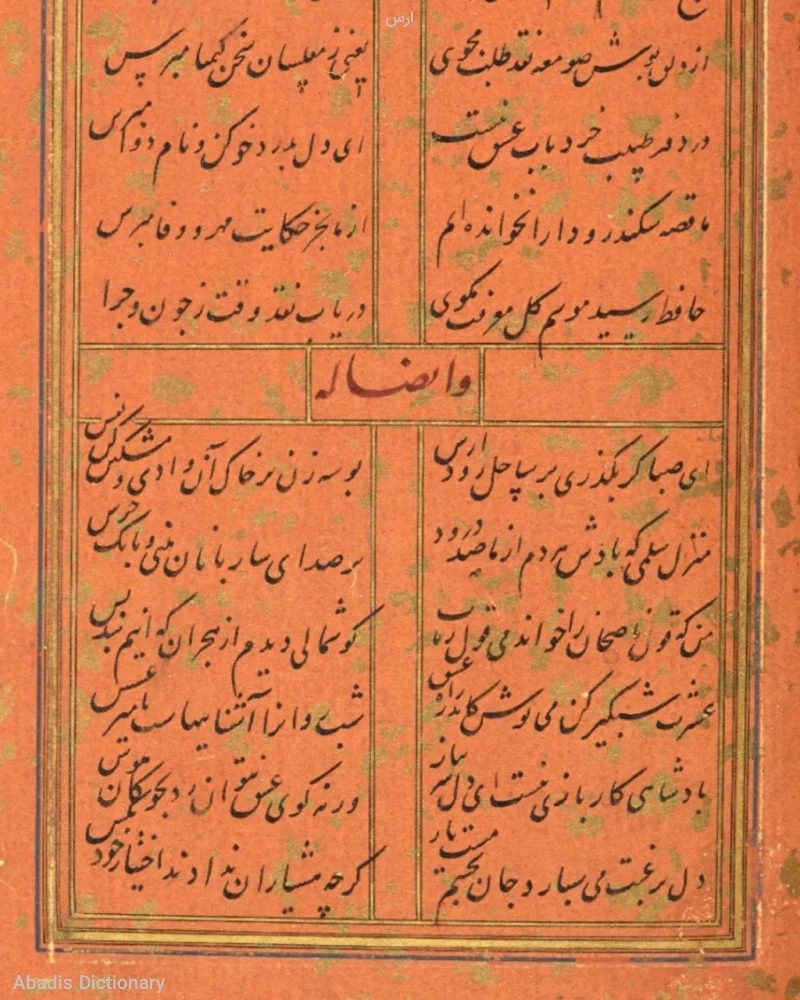 ارس
از دلق پوش صومعه نقد طلب مجوی
یعنی ز مفلسان سخن کیمیا مپرس
در دفتر طبیب خرد باب عشق نیست
ای دل بدرد خو کن و نام دوا مپرس
ما قصه سکندر و دارا نخوانده ایم
از ما بجز حکایت مهر و وفا مپرس
حافظ رسید موسم کل معرفت مکوی
دریاب نقد وقت ز چون و چرا
وایضا له
ای صبا کر بگذری بر ساحل رود ارس
بوسه زن بر خاک آن وادی و مشکین کن نفس
منزل سلمی که بادش هردم از ما صد درود
پر صدای ساربانان بینی و بانک جرس
من که قول ناصحان را خواندمی قول رباب
کوشمالی دیدم از هجران که اینم پند بس
عشرت شبکیر کن می نوش کاندر راه عشق
شب روانرا آشناییهاست با میر عسس
بادشاهی کار بازی نیست ای دل سر بباز
ورنه کوی عشق نتوان زد بجوکان هوس
دل برغبت می سپارد جان بچشم مست یار
کرچه هشیاران ندادند اختیار خود بکس
Abadis Dictionary